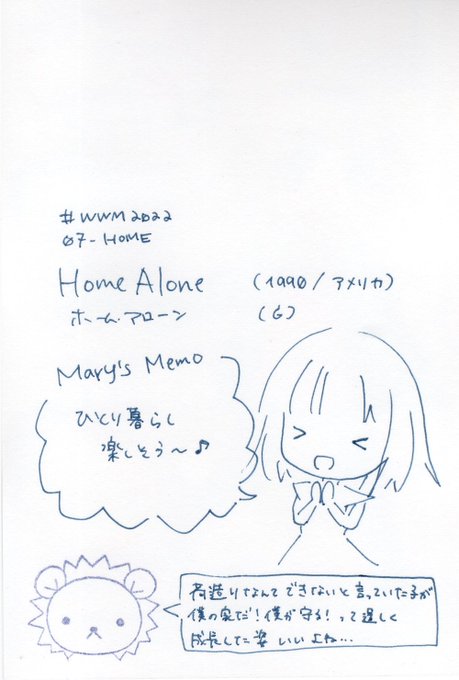 #WWM2022
07-HOME
Home Alone (1990/アメリカ)
ホーム・アローン (G)
Mary's Memo
ひとり暮らし
楽しそう〜♪
荷造りなんてできないと言っていた子が
僕の家だ!僕が守る!って逞しく
成長した姿いいよね…